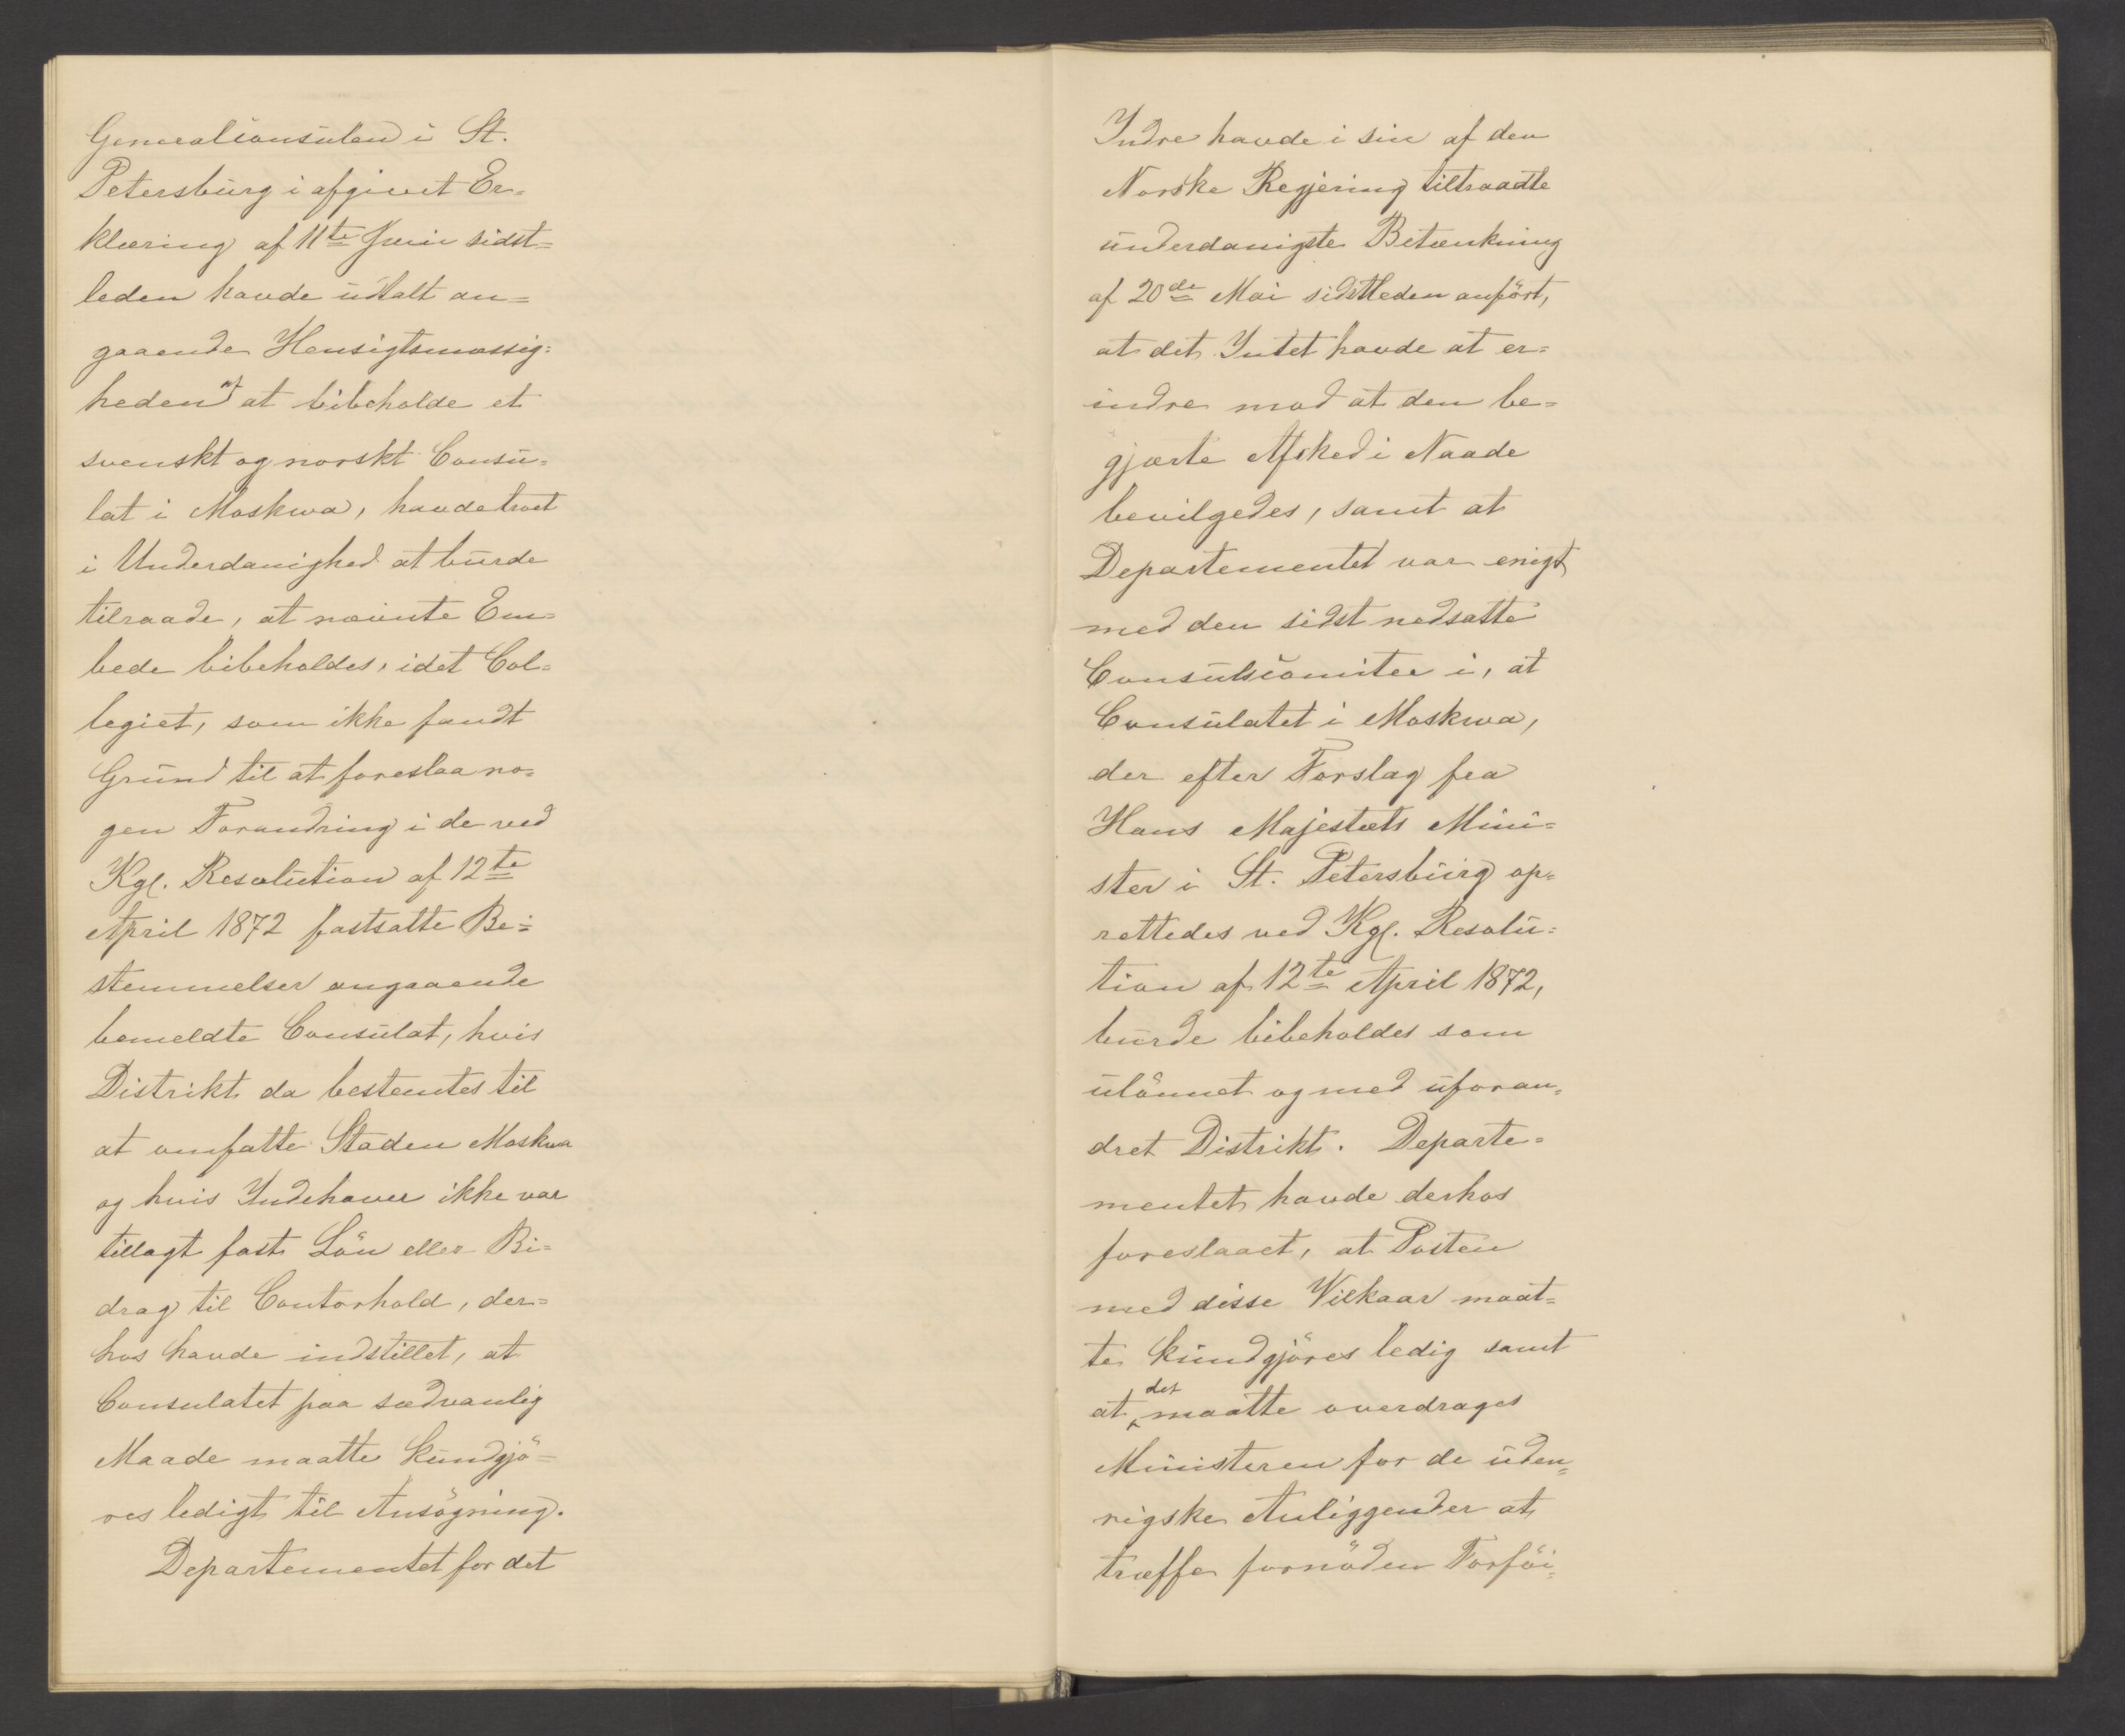 Generalconsulen i St.
Petersburg i afgivet Er=
klæring af 11te Juni sidst=
leden havde udtalt an=
gaaende Hensigtsmæssig=
heden af at bibeholde et
svenskt og norskt Consu=
lat i Moskwa, havde troet
i Underdanighed at burde
tilraade, at nævnte Em=
bede bibeholdes, idet Col=
legiet, som ikke fandt
Grund til at foreslaa no=
gen Forandring i de ved
Kgl. Resolution af 12te
April 1872 fastsatte Be=
stemmelser angaaende
bemeldte Consulat, hvis
Distrikt da bestemtes til
at omfatte Staden Moskwa
og hvis Indehaver ikke var
tillagt fast Lön eller Bi=
drag til Contorhold, der=
hos havde indstillet, at
Consulatet paa sædvanlig
Maade maatte kundgjö=
res ledigt til Ansögning.
Departementet for det
Indre havde i sin af den
Norske Regjering tiltraadte
underdanigste Betænkning
af 20de Mai sidstleden anfört,
at det Intet havde at er=
indre mod at den be=
gjærte Afsked i Naade
bevilgedes, samt at
Departementet var enigt
med den sidst nedsatte
Consulscomitee i, at
Consulatet i Moskwa,
der efter Forslag fra
Hans Majestæts Mini=
ster i St. Petersburg op=
rettedes ved Kgl. Resolu=
tion af 12te April 1872,
burde bibeholdes som
ulönnet og med uforan=
dret Distrikt. Departe=
mentet havde derhos
foreslaaet, at Posten
med disse Vilkaar maat=
te kundgjöres ledig samt
at det maatte overdrages
Ministeren for de uden=
rigske Anliggender at
træffe fornöden Forföi=